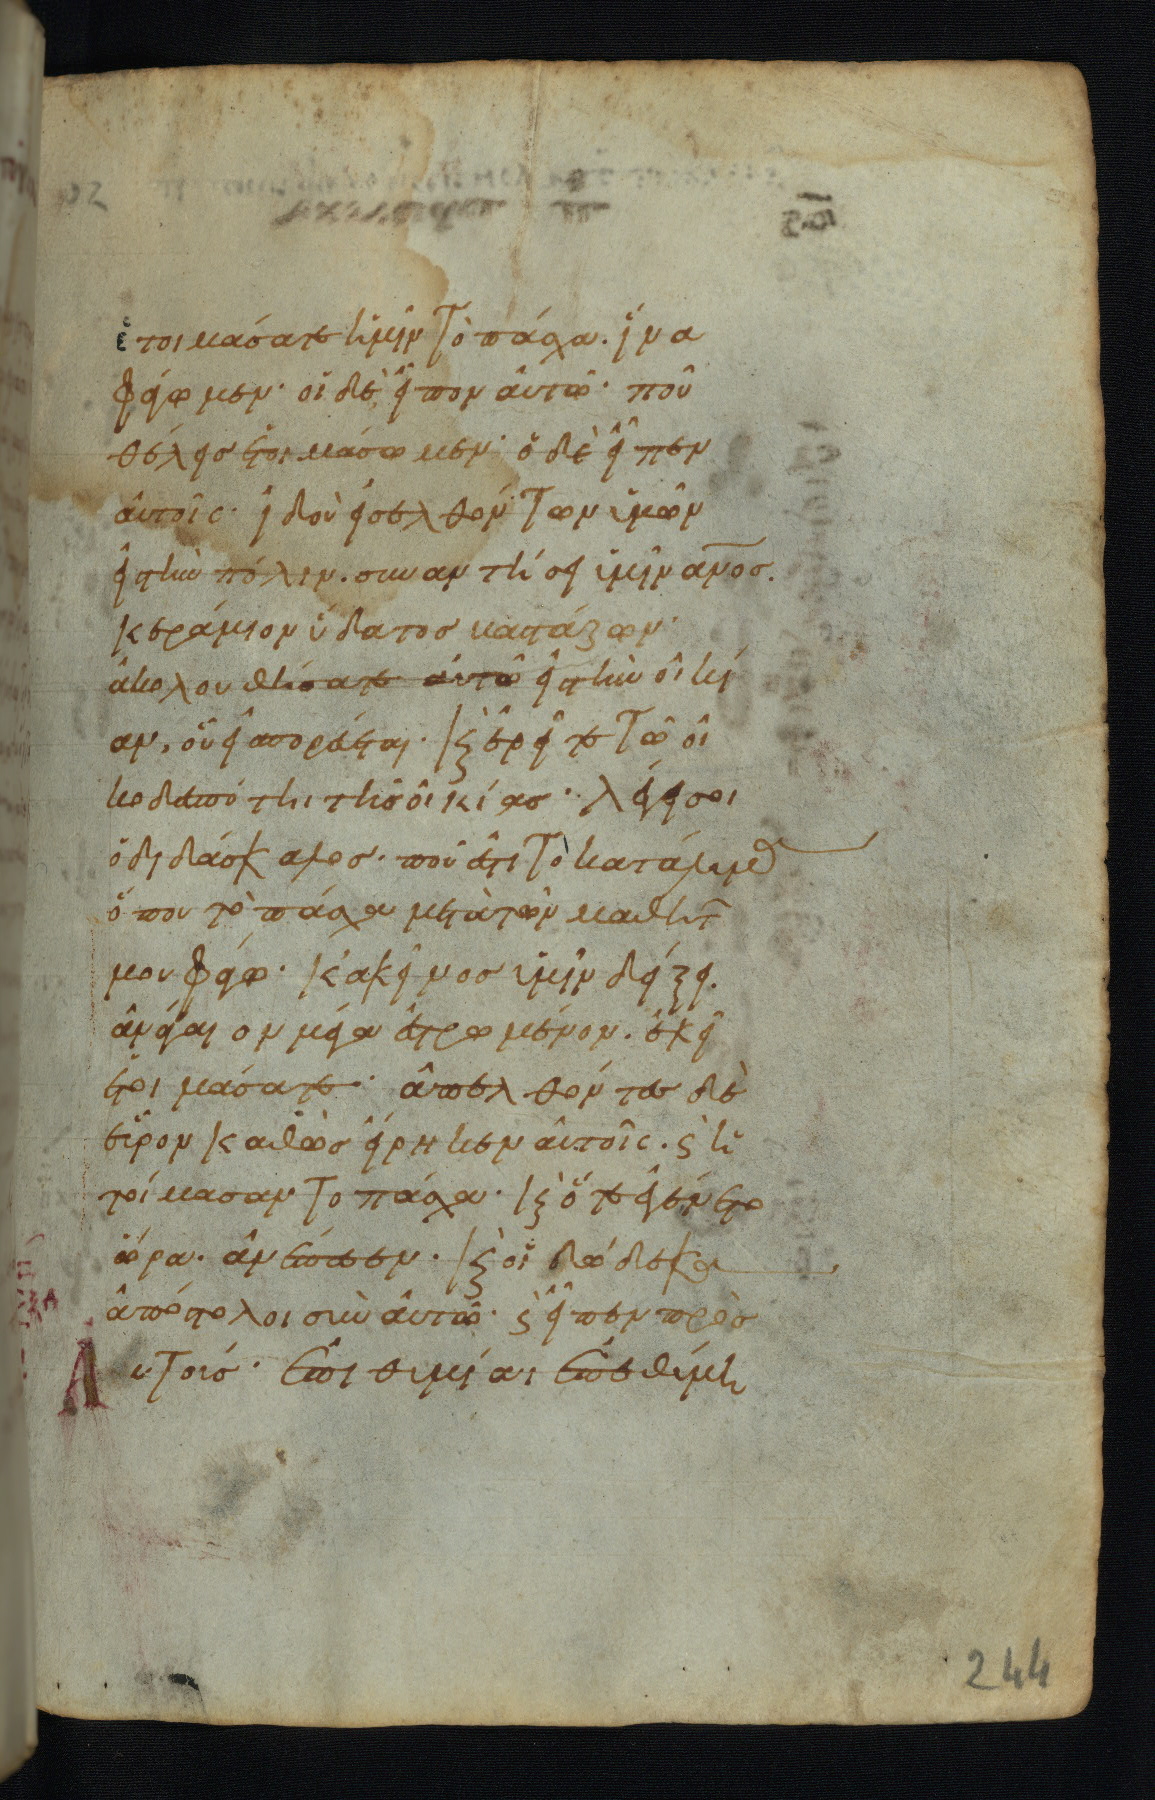 ἑτοιμάσατε ἡμῖν Τὸ πάσχα. ἵνα
φάγωμεν· οἱ δὲ εἶπον αὐτῶ· ποῦ
θέλεις ἑτοιμάσωμεν· ὁ δὲ εἶπεν
αὐτοῖς· ἰδοὺ εἰσελθόντων ὑμῶν
εἰς τὴν πόλιν. συναντήσει ὑμῖν ανος.
κεράμιον ὕδατος βαστάζων·
ἀκολουθήσατε αὐτῶ εἰς τὴν οἰκί
αν, οὗ εἰσπορεύεται· κς ἐρεῖτε Τῶ οἰ
κοδεσπότη τῆς οἰκίας· λέγει σοι
ὁ διδάσκαλος· ποῦ ἐστι Τὸ κατάλυμα
ὅπου τὸ πάσχα μετὰ τῶν μαθητ
μου φάγω· κἀκεῖνος ὑμῖν δείξει
ἀνώγαιον μέγα ἐστρωμένον. ἐκεῖ
ἑτοιμάσατε· ἀπελθόντες δὲ
εὗρον καθὼς εἴρηκεν αὐτοῖς. ς ἡ
τοίμασαν Το πάσχα· κς ὅτε ἐγένετο
ὥρα. ἀνέπεσεν. κς οἱ δώδεκα
ἀπόστολοι σὺν αὐτῶ· ς εἶπεν πρὸς
ΑυΤούς· ἐπιθυμίαι ἐπεθύμη
244